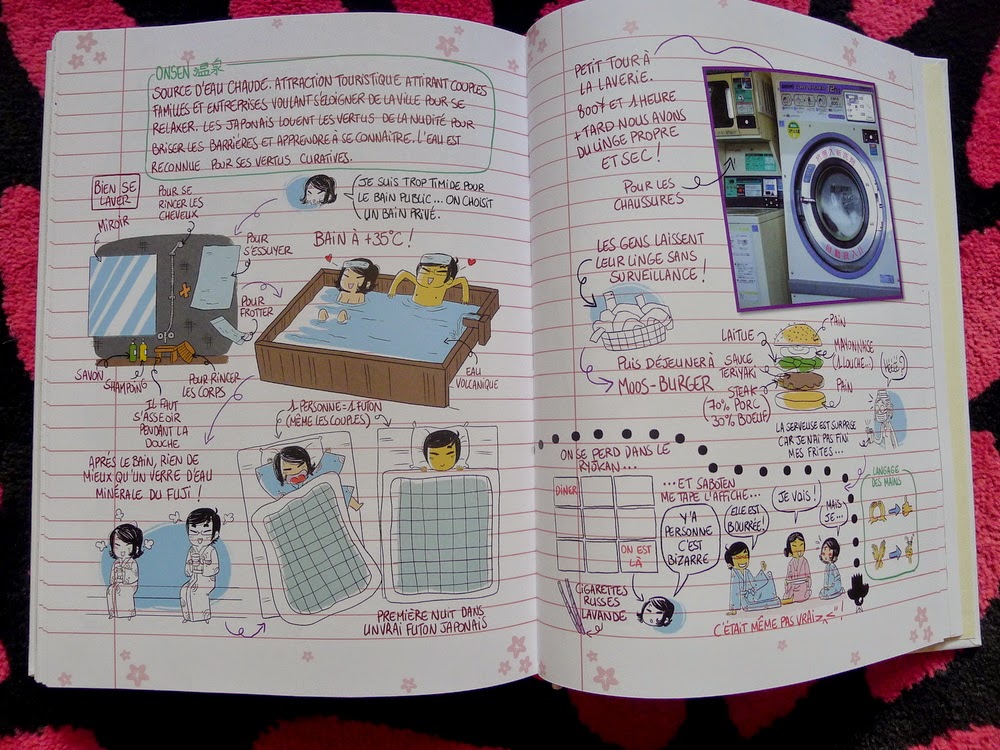 ONSEN 温泉
SOURCE D'EAU CHAUDE. ATTRACTION TOURISTIQUE ATTIRANT COUPLES
FAMILLES ET ENTREPRISES VOULANT S'ÉLOIGNER DE LA VILLE POUR SE
RELAXER. LES JAPONAIS LOUENT LES VERTUS DE LA NUDITÉ POUR
BRISER LES BARRIÈRES ET APPRENDRE À SE CONNAÎTRE. L'EAU EST
RECONNUE POUR SES VERTUS CURATIVES.
BIEN SE
LAVER
POUR SE
RINCER LES
CHEVEUX
MIROIR
JE SUIS TROP TIMIDE POUR
LE BAIN PUBLIC... ON CHOISIT
UN BAIN PRIVÉ.
POUR
S'ESSUYER
BAIN À +35°C !
POUR
FROTTER
SAVON
SHAMPOING
POUR RINCER
LES CORPS
EAU
VOLCANIQUE
IL FAUT
S'ASSEOIR
PENDANT LA
DOUCHE
1 PERSONNE = 1 FUTON
(MÊME LES COUPLES)
APRÈS LE BAIN, RIEN DE
MIEUX QU'UN VERRE D'EAU
MINÉRALE DU FUJI !
PREMIÈRE NUIT DANS
UN VRAI FUTON JAPONAIS
PETIT TOUR À
LA LAVERIE.
800¥ ET 1 HEURE
+ TARD NOUS AVONS
DU LINGE PROPRE
ET SEC !
POUR LES
CHAUSSURES
LES GENS LAISSENT
LEUR LINGE SANS
SURVEILLANCE !
PUIS DÉJEUNER À
MOOS-BURGER
LAITUE
SAUCE
TERIYAKI
STEAK
(70% PORC
35% BOEUF)
PAIN
MAYONNAISE
(1 LOUCHE...)
PAIN
LA SERVEUSE EST SURPRISE
CAR JE N'AI PAS FINI
MES FRITES...
ON SE PERD DANS LE
RYOKAN...
DÎNER
ON EST
LÀ
...ET SABOTEN
ME TAPE L'AFFICHE...
Y'A
PERSONNE
C'EST
BIZARRE
ELLE EST
BOURRÉE!
JE VOIS !
MAIS
JE...
LANGAGE
DES MAINS
CIGARETTES
RUSSES
LAVANDE
C'ÉTAIT MÊME PAS VRAI !